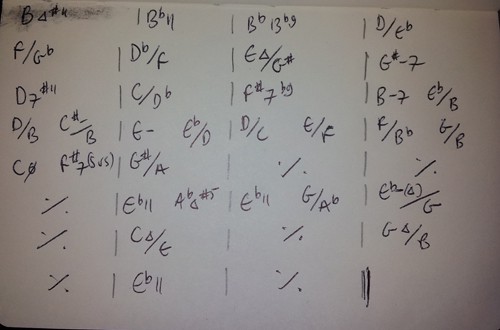 B△#11 | Bb11 | Bb13b9 | D/Eb
F/Gb | Db/F | E△/G# | G#-7
D7#11 | C/Db | F#7b9 | B-7 Eb/B
D/B C#-/B | E- Eb/D | D/C E/F | F/Bb G/B
CØ F#7(sus) | G#/A | ٪ | ٪
٪ | Eb11 Ab△#5 | Eb11 G/Ab | Eb-(△)/G
٪ | C△/E | ٪ | G△/B
٪ | Eb11 | ٪ ||